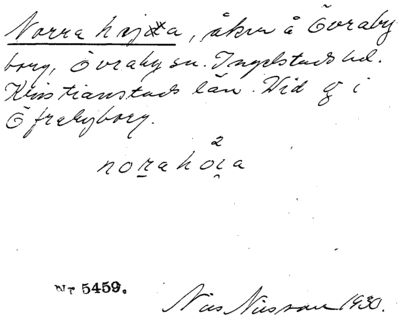 Norra hvjxa, åker å Övraby
borg, Övraby sn. Ingelstads hd.
Kristianstads län. Vid g i
Öfrabyborg.
2
norahöi̯a
Nr 5459.
Nils Nilsson 1930.